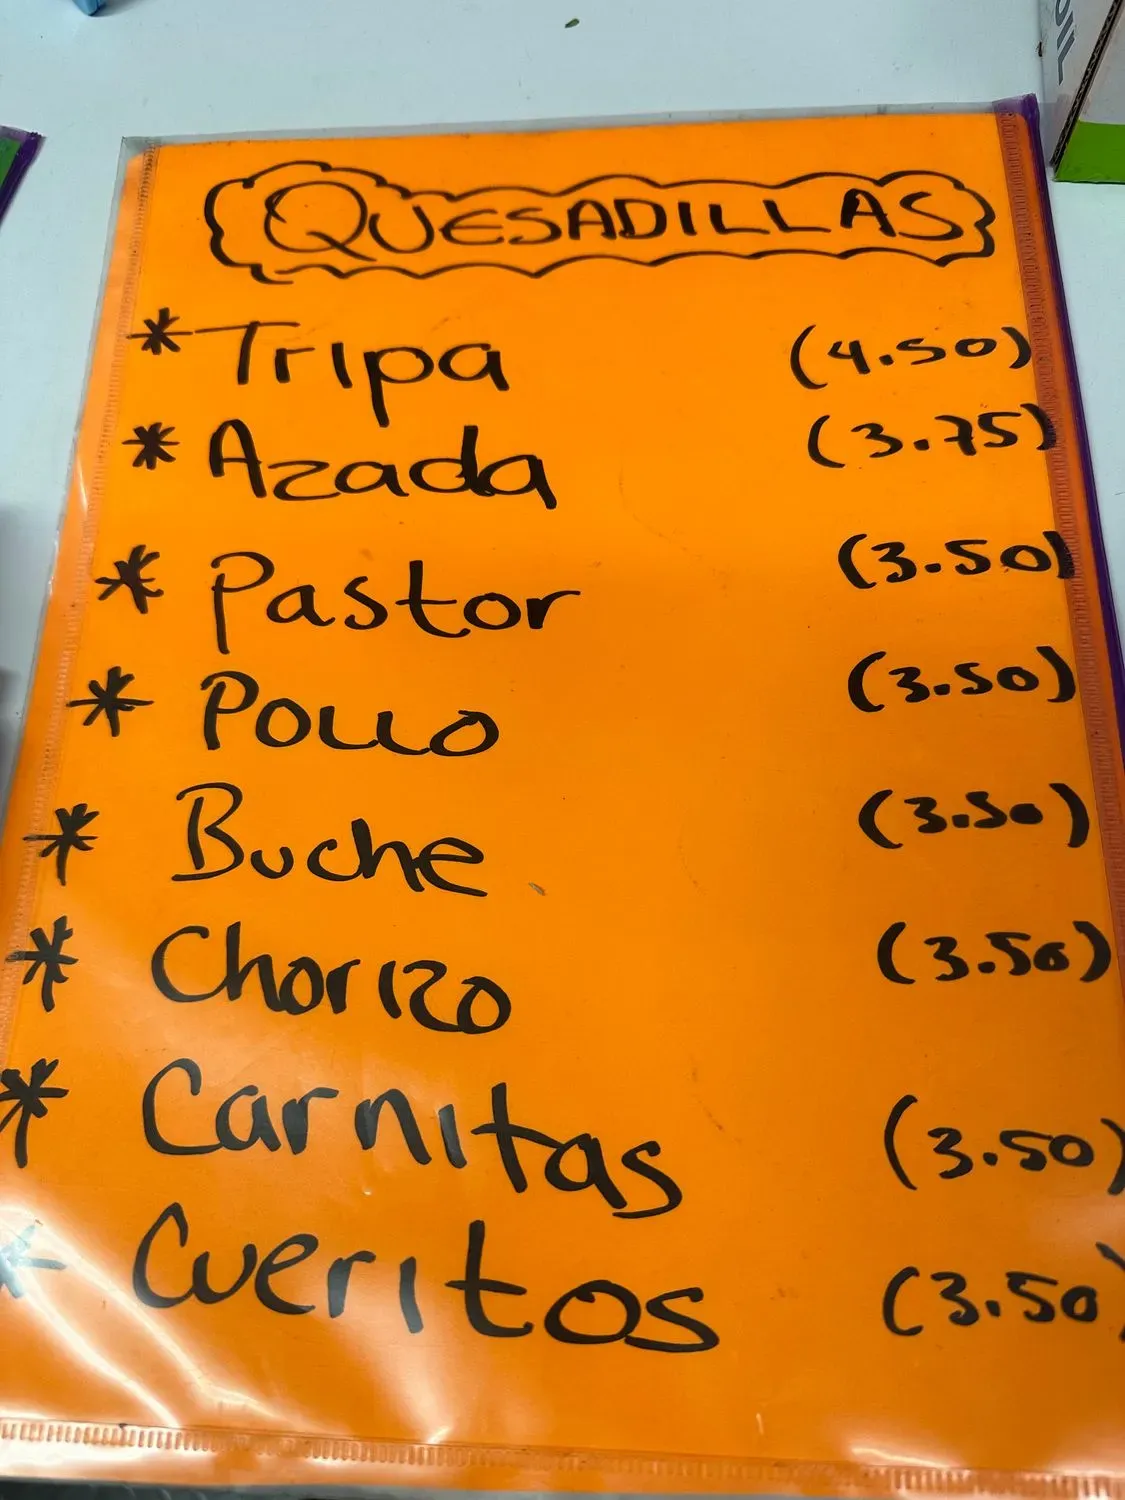 OIL
QUESADILLAS
* Tripa (4.50)
* Azada (3.75)
* Pastor (3.50)
* Pollo (3.50)
* Buche (3.50)
* Chorizo (3.50)
* Carnitas (3.50)
* Cueritos (3.50)